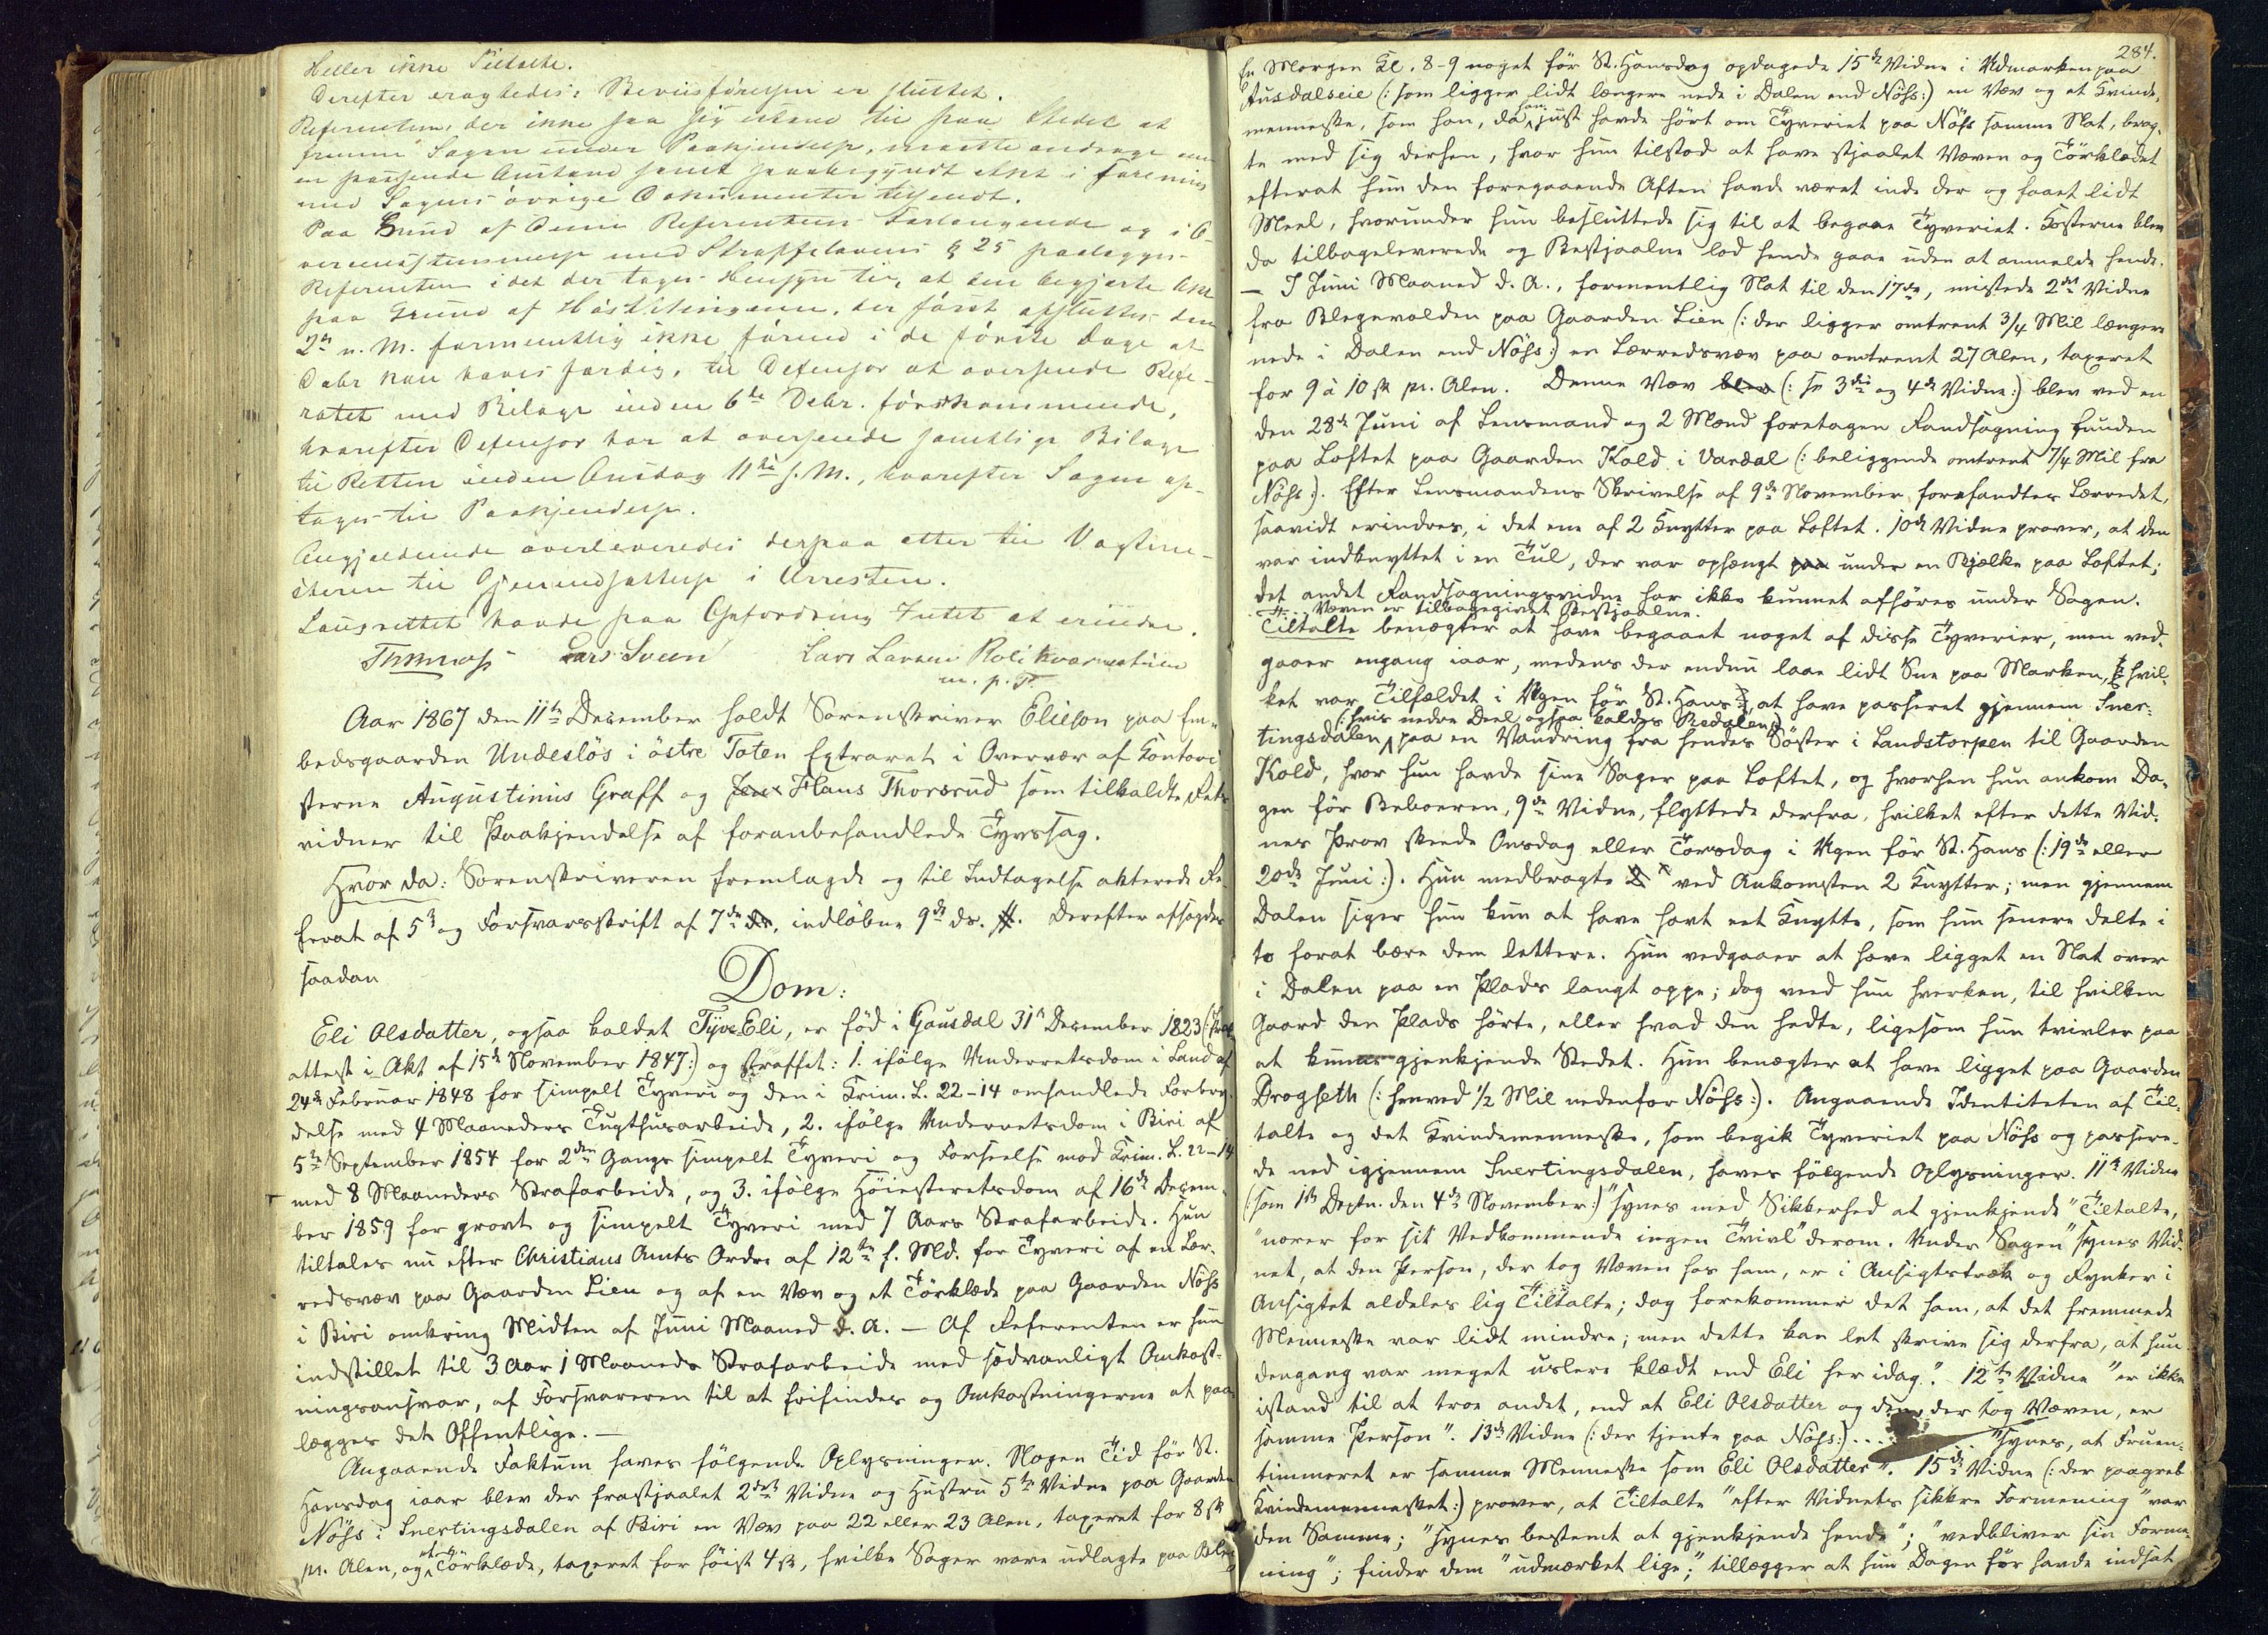 Heller ikke Tiltalte.
Derefter eragtedes: Beviisførelsen er sluttet.
Referenten, der ikke saa sig istand til paa Stedet at
fremme Sagen under Paakjendelse, maatte andrage om
en passende Anstand samt paabegyndt Akt i Forening
med Sagens øvrige Dokumenter tilsendt.
Paa Grund af denne Referentens Forlangende og i O-
verensstemmelse med Straffelovens § 25 paalægges
Referenten i det der tages Hensyn til, at den begjærte Akt
paa Grund af Høsttingene, der først afsluttes den
2den n. M. formentlig ikke førend i de første Dage af
Debr kan haves færdig, til Defensor at oversende Refe-
ratet med Bilage inden 6te Debr. førstkommende,
hvorefter Defensor har at oversende samtlige Bilage
til Retten inden Onsdag 11te s. M., hvorefter Sagen op-
tages til Paakjendelse.
Angjældende overleveredes derpaa atter til Vagtme-
steren til Gjenindsættelse i Arresten.
Laugrettet havde paa Opfordring Intet at erindre.
Lars Sveen Lars Larsen
m. p. P.
Aar 1867 den 11te December holdt Sorenskriver Elieson paa Em-
bedsgaarden Undesløs i østre Toten Extraret i Overvær af Kontori-
sterne Augustinus Graff og Hans Thorsrud som tilkaldte Rets
vidner til Paakjendelse af foranbehandlede Tyvssag.
Hvor da: Sorenskriveren fremlagde og til Indtagelse akterede Re-
ferat af 5te og Forsvarsskrift af 7de ds., indløbne 9de ds. Derefter afsagdes
saadan
Dom:
Eli Olsdatter, ogsaa kaldet Tyve-Eli, er fød i Gausdal 31te December 1823 (:
attest i Akt af 15de November 1847:) og straffet: 1. ifølge Underretsdom i Land af
24de Februar 1848 for simpelt Tyveri og den i Krim. L. 22-14 omhandlede Forbry-
delse med 4 Maaneders Tugthusarbeide, 2. ifølge Underretsdom i Biri af
5te September 1854 for 2den Gangs simpelt Tyveri og Forseelse mod Krim. L. 22-14
med 8 Maaneders Strafarbeide, og 3. ifølge Høiesteretsdom af 16de Decem-
ber 1859 for grovt og simpelt Tyveri med 7 Aars Strafarbeide. Hun
tiltales nu efter Christians Amts Ordre af 12te f. Md. for Tyveri af en Lær-
redsvæv paa Gaarden Lien og af en Væv og et Tørklæde paa Gaarden Nøhs
i Biri omkring Midten af Juni Maaned d. A. — Af Referenten er hun
indstillet til 3 Aar 1 Maaneds Strafarbeide med sædvanligt Omkost-
ningsansvar, af Forsvareren til at frifindes og Omkostningerne at paa-
lægges det Offentlige. —
Angaaende Faktum haves følgende Oplysninger. Nogen Tid før St.
Hansdag iaar blev der frastjaalet 2det Vidne og Hustru 5te Vidne paa Gaarden
Nøhs i Snertingsdalen af Biri en Væv paa 22 eller 23 Alen, taxeret for 8 sk
pr. Alen, og et Tørklæde, taxeret for høist 4 sk, hvilke Sager vare udlagte paa Bleg
284.
En Morgen Kl. 8-9 noget før St. Hansdag opdagede 15de Vidne i Udmarken paa
Ausdalseie (: som ligger lidt længere nede i Dalen end Nøhs:) en Væv og et Kvinde-
menneske, som han, da han just havde hørt om Tyveriet paa Nøhs samme Nat, brag-
te med sig derhen, hvor hun tilstod at have stjaalet Væven og Tørklædet
efterat hun den foregaaende Aften havde været inde der og faaet lidt
Meel, hvorunder hun besluttede sig til at begaae Tyveriet. Kosterne blev
da tilbageleverede og Bestjaalne lod hende gaae uden at anmelde hende.
— I Juni Maaned d. A., formentlig Nat til den 17de, mistede 2det Vidne
fra Blegevolden paa Gaarden Lien (: der ligger omtrent 3/4 Mil længere
nede i Dalen end Nøhs:) en Lærredsvæv paa omtrent 27 Alen, taxeret
for 9 à 10 sk pr. Alen. Denne Væv (: se 3die og 4de Vidne:) blev ved en
den 28de Juni af Lensmand og 2 Mænd foretagen Randsagning funden
paa Loftet paa Gaarden Kold i Vardal (: beliggende omtrent 7/4 Mil fra
Nøhs:). Efter Lensmandens Skrivelse af 9de November forefandtes Lærredet,
saavidt erindres, i det ene af 2 Knytter paa Loftet. 10de Vidne prover, at den
var indknyttet i en Tul, der var ophængt under en Bjælke paa Loftet;
det andet Randsagningsvidne har ikke kunnet afhøres under Sagen.
Væven er tilbagegivet Bestjaalne.
Tiltalte benægter at have begaaet noget af disse Tyverier, men ved-
gaaer engang iaar, medens der endnu laae lidt Sne paa Marken, (: hvil-
ket var Tilfældet i Ugen før St. Hans:), at have passeret gjennem Sner-
(: hvis nedre Deel ogsaa kaldes Bredalen:)
tingsdalen paa en Vandring fra hendes Søster i Landstorpen til Gaarden
Kold, hvor hun havde sine Sager paa Loftet, og hvorhen hun ankom Da-
gen før Beboeren, 9de Vidne, flyttede derfra, hvilket efter dette Vid-
nes Prov skeede Onsdag eller Torsdag i Ugen før St. Hans (: 19de eller
20de Juni:). Hun medbragte ved Ankomsten 2 Knytter; men gjennem
Dalen siger hun kun at have havt eet Knytte, som hun senere delte i
to forat bære dem lettere. Hun vedgaaer at have ligget en Nat over
i Dalen paa en Plads langt oppe; dog veed hun hverken, til hvilken
Gaard den Plads hørte, eller hvad den hedte, ligesom hun tvivler paa
at kunne gjenkjende Stedet. Hun benægter at have ligget paa Gaarden
Drogseth (: henved 1/2 Mil nedenfor Nøhs:). Angaaende Identiteten af Til-
talte og det Kvindemenneske, som begik Tyveriet paa Nøhs og passere-
de ned igjennem Snertingsdalen, haves følgende Oplysninger. 11te Vidne
(: som 1ste Deptn. den 4de November:) "synes med Sikkerhed at gjenkjende" Tiltalte,
"nærer for sit Vedkommende ingen Tvivl" derom. Under Sagen "synes Vid-
net, at den Person, der tog Væven hos ham, er i Ansigtstræk og Rynker i
Ansigtet aldeles lig Tiltalte; dog forekommer det ham, at det fremmede
Menneske var lidt mindre; men dette kan let skrive sig derfra, at hun
dengang var meget uslere klædt end Eli her idag". 12te Vidne "er ikke
istand til at troe andet, end at Eli Olsdatter og den, der tog Væven, er
samme Person". 13de Vidne (: der tjente paa Nøhs:) .... "synes, at Fruen-
timmeret er samme Menneske som Eli Olsdatter". 15de Vidne (: der paagreb
Kvindemennesket:) prover, at Tiltalte "efter Vidnets sikkre Formening" var
den Samme; "synes bestemt at gjenkjende hende"; "vedbliver sin Forme-
ning"; finder dem "udmærket lige"; tillægger at hun Dagen før havde indsat